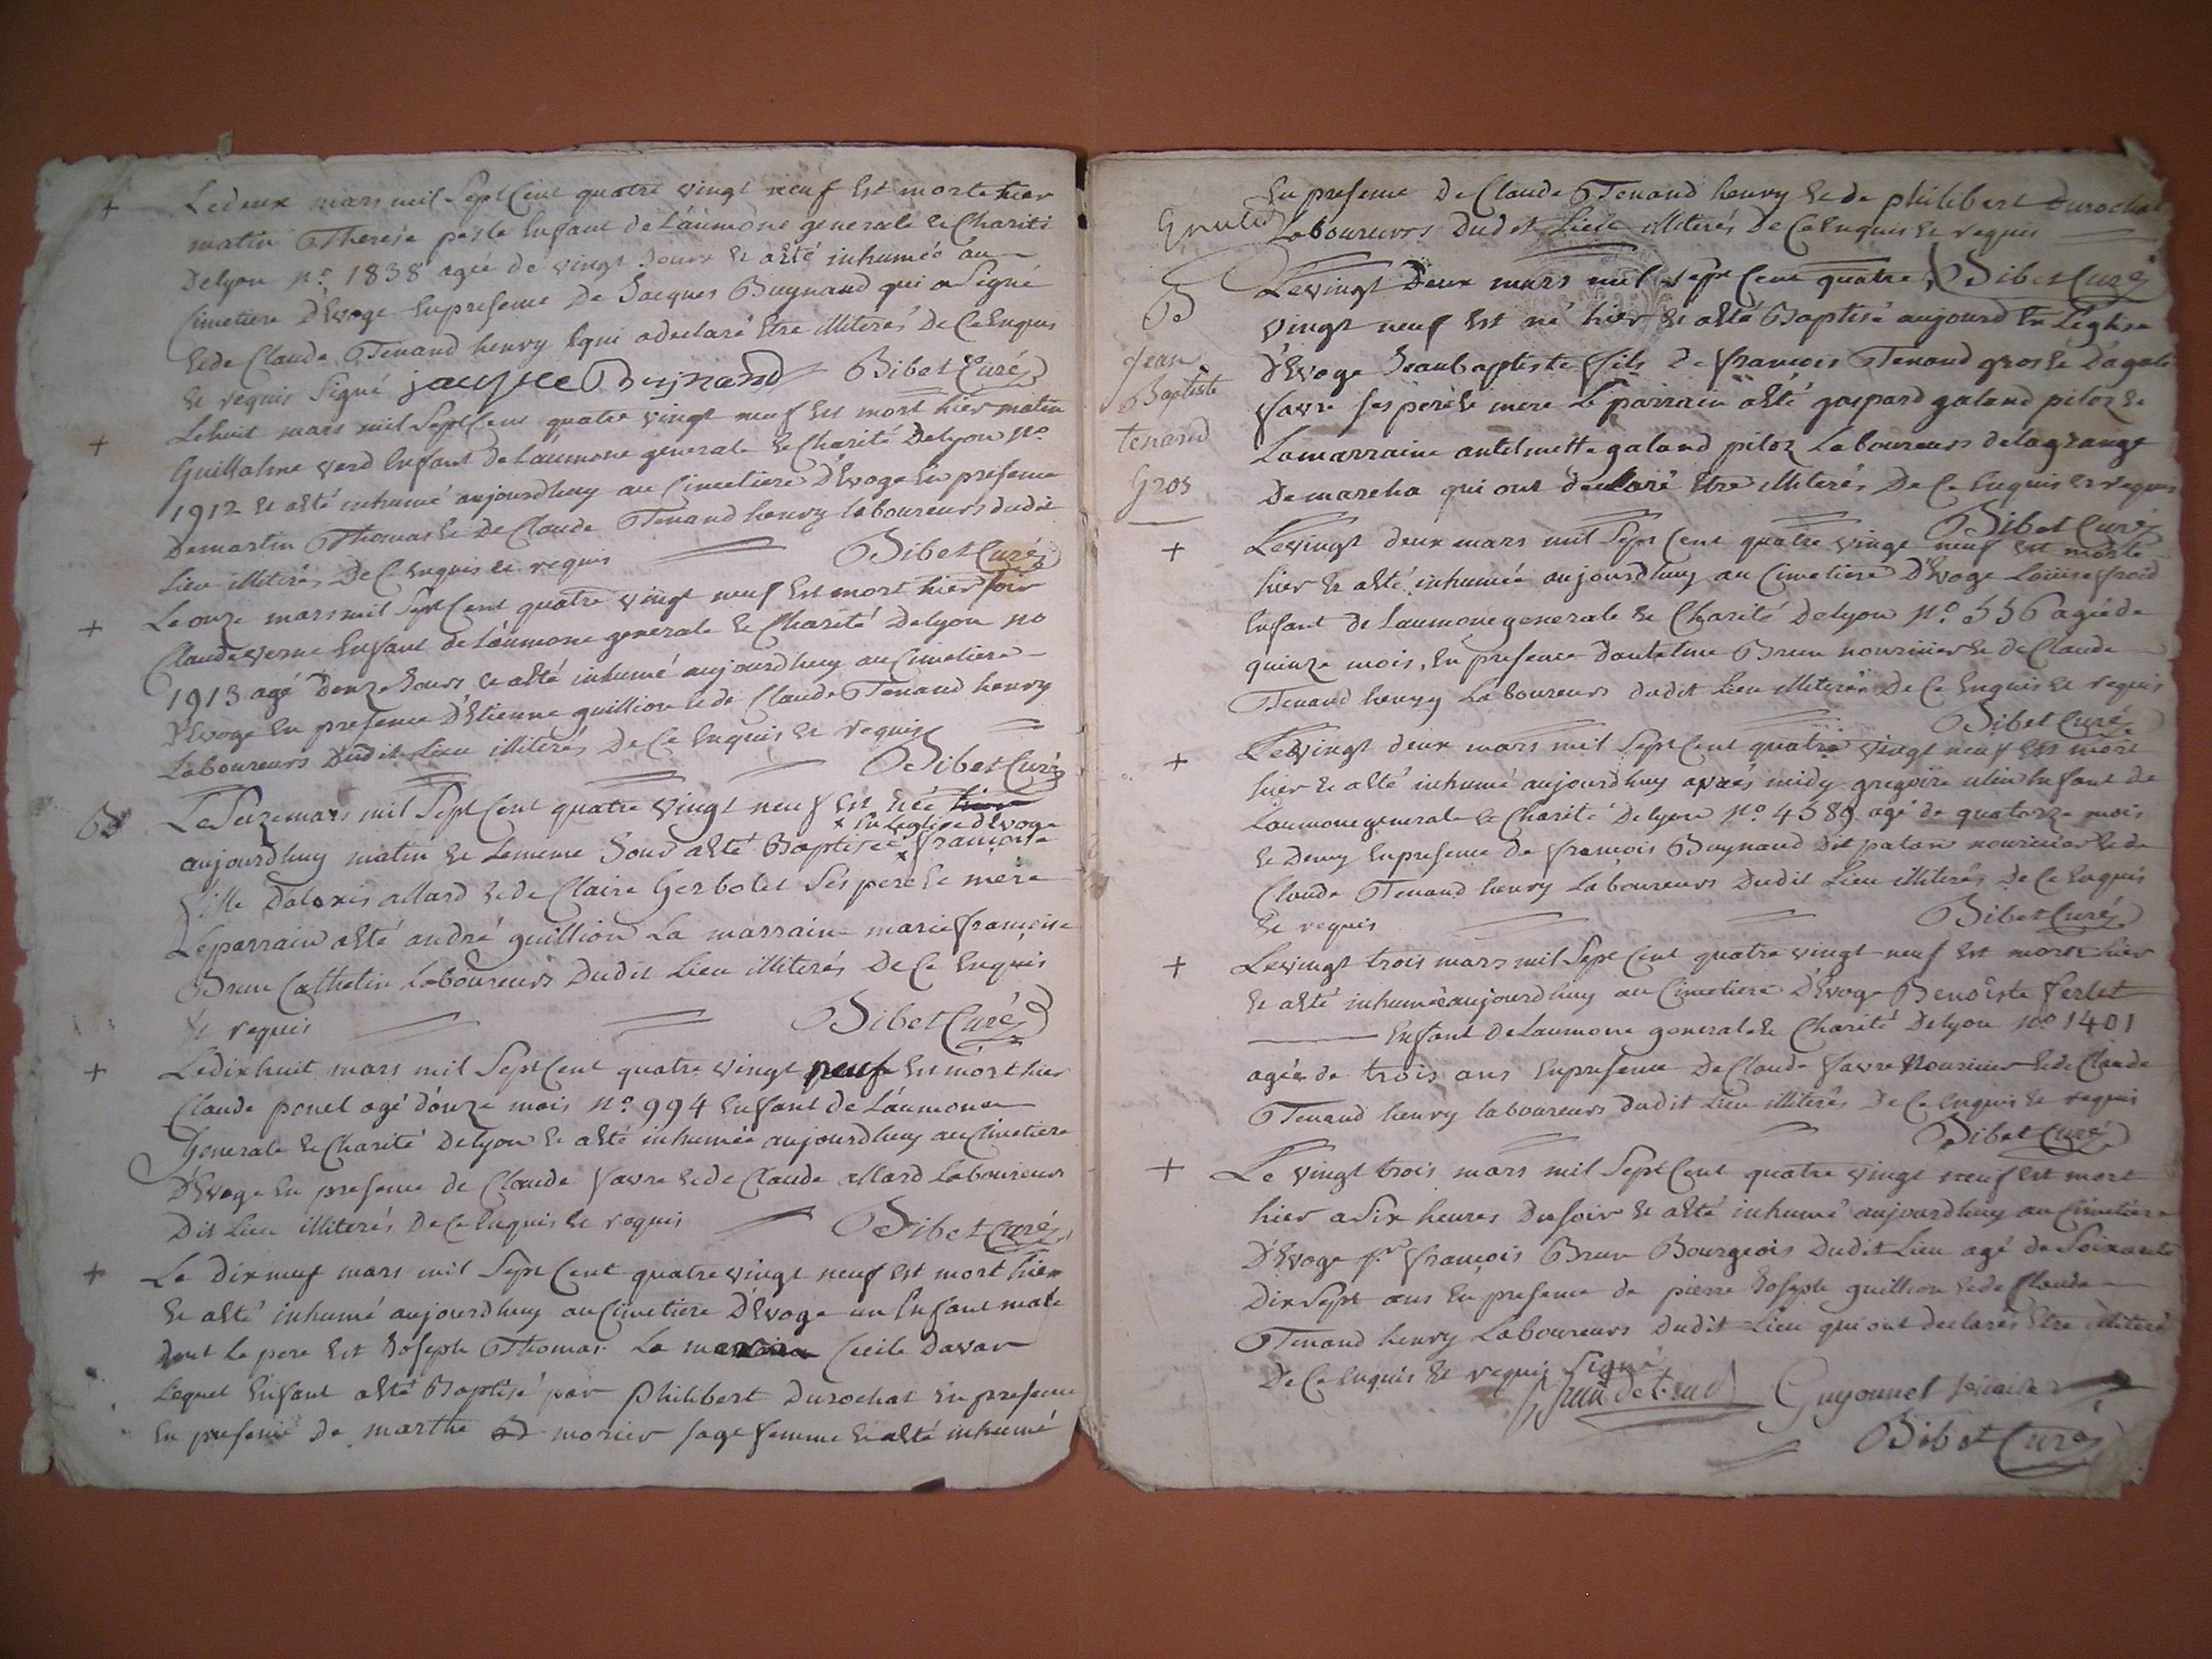 + Le deux mars mil Sept Cent quatre vingt neuf Est morte hier
matin Therese pesle Enfant de L'aumone generale Et Charité
De lyon N.o 1838 agée de vingt Jours Et a Eté inhumée au
Cimetiere D'Evoge En presence De Jacques Buynand qui a Signé
Et de Claude Tenand henry qui a declaré Etre illiterés De Ce Enquis
Et requis Signé jacque Buynand Bibet Curé
+ Le huit mars mil Sept Cent quatre vingt neuf Est mort hier matin
Guillalme verd Enfant de L'aumone generale Et Charité De lyon N.o
1912 Et a Eté inhumé aujourdhuy au Cimetiere D'Evoge En presence
De martin Thomas Et De Claude Tenand henry laboureurs dudit
Lieu illiterés De Ce Enquis Et requis Bibet Curé
+ Le onze mars mil Sept Cent quatre vingt neuf Est mort hier soir
Claude verne Enfant de L'aumone generale Et Charité De lyon No
1913 agé D'onze Jours Et a Eté inhumé aujourdhuy au Cimetiere
D'Evoge En presence D'Etienne guillion Et de Claude Tenand henry
Laboureurs Dudit Lieu illiterés De Ce Enquis Et requis
Bibet Curé
B Le Seize mars mil Sept Cent quatre vingt neuf Est née hier
x En L'eglise d'Evoge
aujourdhuy matin Et Le meme Jour a Eté Baptisée x françoise
fille D'alexis allard Et de Claire Gerbolet Ses pere Et mere
Le parrain a Eté andré guillion La marraine marie françoise
Brun Cathelin Laboureurs Dudit Lieu illiterés De Ce Enquis
Et requis Bibet Curé
+ Le dix huit mars mil Sept Cent quatre vingt neuf Est mort hier
Claude ponel agé d'onze mois N.o 994 Enfant de L'aumone
Generale Et Charité De lyon Et a Eté inhumée aujourdhuy au Cimetiere
D'Evoge En presence de Claude favre Et de Claude allard Laboureurs
Dit Lieu illiterés De Ce Enquis Et requis Bibet Curé
+ Le dix neuf mars mil Sept Cent quatre vingt neuf Est mort hier
Et a Eté inhumé aujourdhuy au Cimetiere D'Evoge un Enfant male
dont Le pere Est Joseph Thomas La Cecile Davar
Lequel Enfant a Eté Baptisé par Philibert Durochat En presence
En presence De marthe morier sage femme Et a Eté inhumé
En presence De Claude Tenand henry Et de philibert Durochat
Laboureurs Dudit Lieu illiterés De Ce Enquis Et requis
Bibet Curé
B Le vingt Deux mars mil Sept Cent quatre
vingt neuf Est né hier Et a Eté Baptisé aujourd En L'eglise
Jean
Baptiste
tenand
Gros
D'Evoge Jean baptiste fils De francois Tenand gros Et D'agate
favre Ses pere Et mere Le parrain a Eté gaspard galand piloz Et
La marraine antelmette galand piloz Laboureurs de la grange
De mareha qui ont declaré Etre illiterés De Ce Enquis Et requis
Bibet Curé
+ Le vingt deux mars mil Sept Cent quatre vingt neuf Est morte
hier Et a Eté inhumée aujourdhuy au Cimetiere D'Evoge Loüise froid
Enfant de L'aumone generale Et Charité De lyon N.o 556 agée de
quinze mois, En presence D'antelme Brun nourricier Et de Claude
Tenand henry Laboureurs dudit Lieu illiterés De Ce Enquis Et requis
Bibet Curé
+ Le vingt deux mars mil Sept Cent quatre vingt neuf Est mort
hier Et a Eté inhumé aujourdhuy aprés midy gregoire Enfant de
L'aumone generale Et Charité De lyon N.o 4589 agé de quatorze mois
Et Demy En presence de françois Buynand Dit patan nourricier Et de
Claude Tenand henry Laboureurs Dudit Lieu illiterés De Ce Enquis
Et requis Bibet Curé
+ Le vingt trois mars mil Sept Cent quatre vingt neuf Est morte hier
Et a Eté inhumée aujourdhuy au Cimetiere D'Evoge Benoîste ferlet
Enfant De L'aumone generale Et Charité De lyon No 1401
agée de trois ans En presence De Claude favre Nourricier Et de Claude
Tenand henry laboureurs dudit Lieu illiterés De Ce Enquis Et requis
Bibet Curé
+ Le vingt trois mars mil Sept Cent quatre vingt neuf Est mort
hier a Six heures Du soir Et a Eté inhumé aujourdhuy au Cimetiere
D'Evoge françois Brun Bourgeois Dudit Lieu agé de Soixante
Dix Sept ans En presence de pierre Joseph guillion Et de Claude
Tenand henry Laboureurs Dudit Lieu qui ont declarés Etre illiterés
De Ce Enquis Et requis Signé
Guyonnet
Bibet Curé